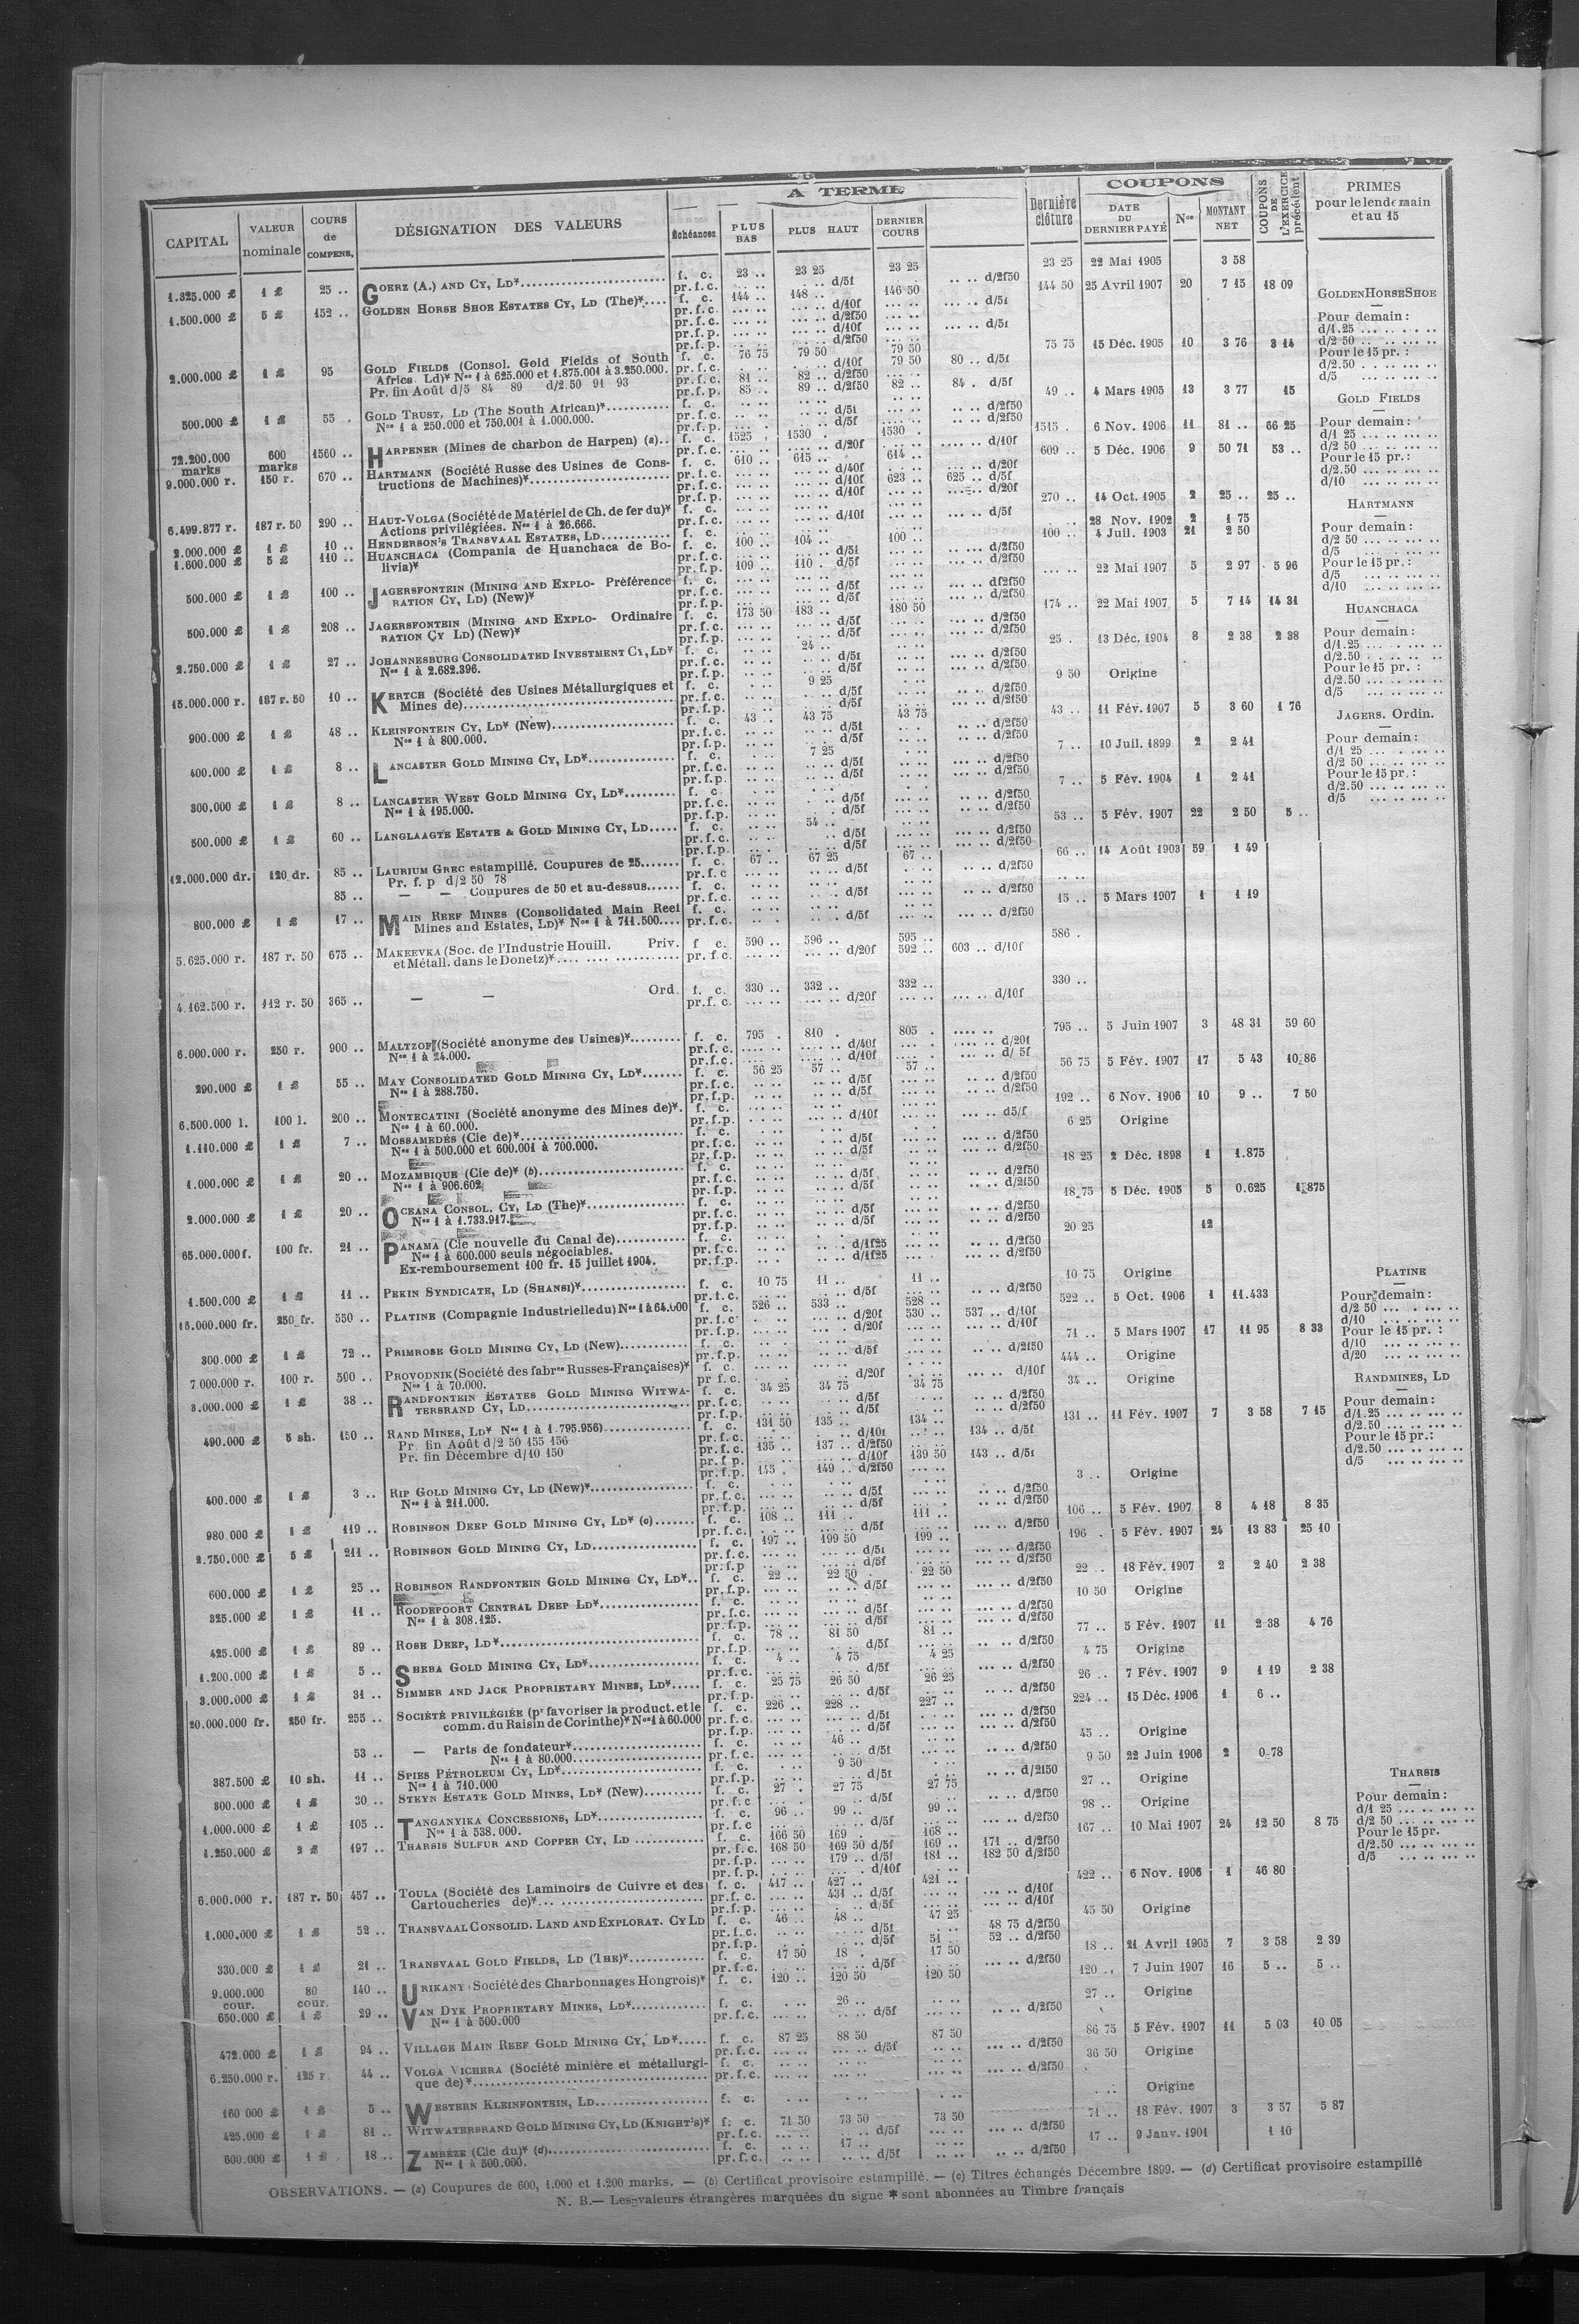 CAPITAL VALEUR nominale COURS de COMPENS. DÉSIGNATION DES VALEURS A TERME Échéances PLUS BAS PLUS HAUT DERNIER COURS Dernière clôture COUPONS DATE DU DERNIER PAYÉ Nos MONTANT NET COUPONS DE L'EXERCICE précédent PRIMES pour le lendemain et au 15
1.325.000 £ 1 £ 25 .. GOERZ (A.) AND CY, LD* f. c. 23 .. 23 25 23 25 23 25 22 Mai 1905 3 58
pr. f. c. d/5f d/2f50
1.500.000 £ 5 £ 152 .. GOLDEN HORSE SHOE ESTATES CY, LD (The)* f. c. 144 .. 148 .. 146 50 144 50 25 Avril 1907 20 7 15 18 09
2.000.000 £ 1 £ 95 GOLD FIELDS (Consol. Gold Fields of South f. c. 76 75 79 50 79 50 75 75 15 Déc. 1905 10 3 76 3 14
Africa Ld)* Nos 1 à 625.000 et 1.875.001 à 3.250.000. pr. f. c. d/10f 79 50 80 .. d/5f
Pr. fin Août d/5 84 89 d/2.50 91 93 pr. f. c. 81 .. 82 .. d/2f50
pr. f. p. 85 .. 89 .. d/2f50 82 .. 84 . d/5f
500.000 £ 1 £ 55 . GOLD TRUST, LD (The South African)* f. c. 49 .. 4 Mars 1905 13 3 77 15
Nos 1 à 250.000 et 750.001 à 1.000.000.
72.200.000 marks 600 marks 1560 .. HARPENER (Mines de charbon de Harpen) (a).. f. c. 1525 . 1530 . 1530 . 1515 . 6 Nov. 1906 11 81 .. 66 25
pr. f. c. d/20f d/10f
9.000.000 r. 150 r. 670 .. HARTMANN (Société Russe des Usines de Cons- f. c. 610 .. 615 .. 614 .. 609 .. 5 Déc. 1906 9 50 71 53 ..
tructions de Machines)* 623 .. 625 .. d/5f
6.499.877 r. 187 r. 50 290 .. HAUT-VOLGA (Société de Matériel de Ch. de fer du)* f. c. 270 .. 14 Oct. 1905 2 25 .. 25 ..
Actions privilégiées. Nos 1 à 26.666. pr. f. c. d/10f d/5f
2.000.000 £ 1 £ 10 .. HENDERSON'S TRANSVAAL ESTATES, LD f. c. 28 Nov. 1902 2 1 75
1.600.000 £ 5 £ 110 .. HUANCHACA (Compania de Huanchaca de Bo- f. c. 100 .. 104 .. 100 .. 100 .. 4 Juil. 1903 21 2 50
livia)* pr. f. p. 109 .. 110 . d/5f d/2f50
500.000 £ 1 £ 100 .. JAGERSFONTEIN (MINING AND EXPLO- Préférence f. c. 22 Mai 1907 5 2 97 5 96
RATION CY, LD) (New)*
500.000 £ 1 £ 208 .. JAGERSFONTEIN (MINING AND EXPLO- Ordinaire f. c. 173 50 183 .. 180 50 174 .. 22 Mai 1907 5 7 14 14 31
RATION CY LD) (New)*
2.750.000 £ 1 £ 27 .. JOHANNESBURG CONSOLIDATED INVESTMENT CY, LD* f. c. 24 .. 25 . 13 Déc. 1904 8 2 38 2 38
Nos 1 à 2.682.396.
15.000.000 r. 187 r. 50 10 .. KERTCH (Société des Usines Métallurgiques et f. c. 9 25 9 50 Origine
Mines de)
900.000 £ 1 £ 48 .. KLEINFONTEIN CY, LD* (New) f. c. 43 . 43 75 43 75 43 .. 11 Fév. 1907 5 3 60 1 76
Nos 1 à 800.000.
400.000 £ 1 £ 8 .. LANCASTER GOLD MINING CY, LD* f. c. 7 25 7 .. 10 Juil. 1899 2 2 41
300.000 £ 1 £ 8 .. LANCASTER WEST GOLD MINING CY, LD* f. c. 7 .. 5 Fév. 1904 1 2 41
Nos 1 à 195.000.
500.000 £ 1 £ 60 .. LANGLAAGTE ESTATE & GOLD MINING CY, LD f. c. 54 .. 53 .. 5 Fév. 1907 22 2 50 5 ..
12.000.000 dr. 120 dr. 85 .. LAURIUM GREC estampillé. Coupures de 25 f. c. 67 .. 67 25 67 .. 66 .. 14 Août 1903 59 1 49
Pr. f. p d/2 50 78 pr. f. c d/5f d/2f50
85 .. — — Coupures de 50 et au-dessus f. c.
800.000 £ 1 £ 17 .. MAIN REEF MINES (Consolidated Main Reef f. c. 15 .. 5 Mars 1907 1 1 19
Mines and Estates, LD)* Nos 1 à 711.500 pr. f. c. d/5f d/2f50
5.625.000 r. 187 r. 50 675 .. MAKEEVKA (Soc. de l'Industrie Houill. Priv. f. c. 590 .. 596 .. 595 .. 586 .
et Métall. dans le Donetz)* pr. f. c. d/20f 592 .. 603 .. d/10f
4.162.500 r. 112 r. 50 365 .. — — Ord. f. c. 330 .. 332 .. 332 .. 330 ..
pr. f. c. d/20f d/10f
6.000.000 r. 250 r. 900 .. MALTZOF (Société anonyme des Usines)* f. c. 795 . 810 . 805 . 795 .. 5 Juin 1907 3 48 31 59 60
Nos 1 à 24.000.
290.000 £ 1 £ 55 .. MAY CONSOLIDATED GOLD MINING CY, LD* f. c. 56 25 57 .. 57 .. 56 75 5 Fév. 1907 17 5 43 10 86
Nos 1 à 288.750.
6.500.000 l. 100 l. 200 .. MONTECATINI (Société anonyme des Mines de)*. f. c. 192 .. 6 Nov. 1906 10 9 .. 7 50
Nos 1 à 60.000. pr. f. p. d/10f d5/f
1.110.000 £ 1 £ 7 .. MOSSAMEDÈS (Cie de)* f. c. 6 25 Origine
Nos 1 à 500.000 et 600.001 à 700.000.
1.000.000 £ 1 £ 20 .. MOZAMBIQUE (Cie de)* (b) f. c. 18 25 2 Déc. 1898 1 1.875
Nos 1 à 906.602
2.000.000 £ 1 £ 20 .. OCEANA CONSOL. CY, LD (The)* f. c. 18 75 5 Déc. 1905 5 0.625 1.875
Nos 1 à 1.733.917.
65.000.000 f. 100 fr. 21 .. PANAMA (Cie nouvelle du Canal de) f. c. 20 25 12
Nos 1 à 600.000 seuls négociables. pr. f. c. d/1f25 d/2f50
Ex-remboursement 100 fr. 15 juillet 1904. pr. f. p. d/1f25 d/2f50
1.500.000 £ 1 £ 11 .. PEKIN SYNDICATE, LD (SHANSI)* f. c. 10 75 11 .. 11 .. 10 75 Origine
15.000.000 fr. 250 fr. 550 .. PLATINE (Compagnie Industrielle du) Nos 1 à 64.000 f. c. 526 .. 533 .. 528 .. 522 .. 5 Oct. 1906 1 11.433
pr. f. c. d/20f 530 .. 537 .. d/10f
300.000 £ 1 £ 72 .. PRIMROSE GOLD MINING CY, LD (New) f. c. 71 .. 5 Mars 1907 17 11 95 8 33
7.000.000 r. 100 r. 500 .. PROVODNIK (Société des fabres Russes-Françaises)* f. c. 444 .. Origine
Nos 1 à 70.000. pr. f. c. d/20f d/10f
3.000.000 £ 1 £ 38 .. RANDFONTEIN ESTATES GOLD MINING WITWA- f. c. 34 25 34 75 34 75 34 .. Origine
TERSRAND CY, LD
490.000 £ 5 sh. 150 .. RAND MINES, LD* Nos 1 à 1.795.956) f. c. 131 50 135 .. 134 .. 131 .. 11 Fév. 1907 7 3 58 7 15
Pr. fin Août d/2 50 155 156 134 .. d/5f
Pr. fin Décembre d/10 150 135 .. 137 .. d/2f50 139 50 143 .. d/5f
pr. f. p. 145 . 149 .. d/2f50
400.000 £ 1 £ 3 .. RIP GOLD MINING CY, LD (New)* f. c. 3 .. Origine
Nos 1 à 211.000.
980.000 £ 1 £ 119 .. ROBINSON DEEP GOLD MINING CY, LD* (c) f. c. 108 .. 111 . 111 .. 106 .. 5 Fév. 1907 8 4 18 8 35
2.750.000 £ 5 £ 211 .. ROBINSON GOLD MINING CY, LD f. c. 197 .. 199 50 199 .. 196 . 5 Fév. 1907 24 13 83 25 10
600.000 £ 1 £ 25 .. ROBINSON RANDFONTEIN GOLD MINING CY, LD*.. f. c. 22 .. 22 50 22 50 22 .. 18 Fév. 1907 2 2 40 2 38
325.000 £ 1 £ 11 .. ROODEPOORT CENTRAL DEEP LD* f. c. 10 50 Origine
Nos 1 à 308.125.
425.000 £ 1 £ 89 .. ROSE DEEP, LD* f. c. 78 .. 81 50 81 .. 77 .. 5 Fév. 1907 11 2 38 4 76
1.200.000 £ 1 £ 5 .. SHEBA GOLD MINING CY, LD* f. c. 4 .. 4 75 4 25 4 75 Origine
3.000.000 £ 1 £ 31 .. SIMMER AND JACK PROPRIETARY MINES, LD* f. c. 25 75 26 50 26 25 26 .. 7 Fév. 1907 9 1 19 2 38
20.000.000 fr. 250 fr. 255 .. SOCIÉTÉ PRIVILÉGIÉE (pr favoriser la product. et le f. c. 226 .. 228 .. 227 .. 224 .. 15 Déc. 1906 1 6 ..
comm. du Raisin de Corinthe)* Nos 1 à 60.000
53 .. — Parts de fondateur* f. c. 46 .. 45 .. Origine
Nos 1 à 80.000
387.500 £ 10 sh. 11 .. SPIES PÉTROLEUM CY, LD* f. c. 9 50 9 50 22 Juin 1906 2 0.78
Nos 1 à 710.000
800.000 £ 1 £ 30 .. STEYN ESTATE GOLD MINES, LD* (New) f. c. 27 . 27 75 27 75 27 .. Origine
1.000.000 £ 1 £ 105 .. TANGANYIKA CONCESSIONS, LD* f. c. 96 .. 99 .. 99 .. 98 .. Origine
Nos 1 à 538.000.
1.250.000 £ 2 £ 197 .. THARSIS SULFUR AND COPPER CY, LD f. c. 166 50 169 . 168 .. 167 .. 10 Mai 1907 24 12 50 8 75
pr. f. c. 168 50 169 50 d/5f 169 .. 171 .. d/2f50
pr. f. p. 179 .. d/5f 181 .. 182 50 d/2f50
pr. f. p. d/10f
6.000.000 r. 187 r. 50 457 .. TOULA (Société des Laminoirs de Cuivre et des f. c. 417 .. 427 .. 421 .. 422 .. 6 Nov. 1906 1 46 80
Cartoucheries de)* pr. f. c. 431 .. d/5f d/10f
1.000.000 £ 1 £ 52 .. TRANSVAAL CONSOLID. LAND AND EXPLORAT. CY LD f. c. 46 .. 48 .. 47 25 45 50 Origine
pr. f. c. d/5f 48 75 d/2f50
pr. f. p. d/5f 51 .. 52 .. d/2f50
330.000 £ 1 £ 21 .. TRANSVAAL GOLD FIELDS, LD (THE)* f. c. 17 50 18 . 17 50 18 .. 21 Avril 1905 7 3 58 2 39
9.000.000 cour. 80 cour. 140 .. URIKANY (Société des Charbonnages Hongrois)* f. c. 120 .. 120 50 120 50 120 .. 7 Juin 1907 16 5 .. 5 ..
650.000 £ 1 £ 29 .. VAN DYK PROPRIETARY MINES, LD* f. c. 26 .. 27 .. Origine
Nos 1 à 500.000 pr. f. c. d/5f d/2f50
472.000 £ 1 £ 94 .. VILLAGE MAIN REEF GOLD MINING CY, LD* f. c. 87 25 88 50 87 50 86 75 5 Fév. 1907 11 5 03 10 05
6.250.000 r. 125 r 44 .. VOLGA VICHERA (Société minière et métallurgi- f. c. 36 50 Origine
que de)*
160.000 £ 1 £ 5 .. WESTERN KLEINFONTEIN, LD f. c. Origine
425.000 £ 1 £ 81 .. WITWATERSRAND GOLD MINING CY, LD (KNIGHT'S)* f. c. 71 50 73 50 73 50 71 .. 18 Fév. 1907 3 3 57 5 87
600.000 £ 1 £ 18 .. ZAMBÈZE (Cie du)* (d) f. c. 17 .. 17 .. 9 Janv. 1901 1 10
Nos 1 à 500.000. pr. f. c. d/5f d/2f50
GOLDEN HORSE SHOE
Pour demain :
d/1.25
d/2 50
Pour le 15 pr. :
d/2.50
d/5
GOLD FIELDS
Pour demain :
d/1 25
d/2 50
Pour le 15 pr. :
d/2.50
d/10
HARTMANN
Pour demain :
d/2 50
d/5
Pour le 15 pr. :
d/5
d/10
HUANCHACA
Pour demain :
d/1.25
d/2.50
Pour le 15 pr. :
d/2.50
d/5
JAGERS. Ordin.
Pour demain :
d/1 25
d/2 50
Pour le 15 pr. :
d/2.50
d/5
PLATINE
Pour demain :
d/2 50
d/10
Pour le 15 pr. :
d/10
d/20
RANDMINES, LD
Pour demain :
d/1.25
d/2.50
Pour le 15 pr. :
d/2.50
d/5
THARSIS
Pour demain :
d/1 25
d/2 50
Pour le 15 pr.
d/2.50
d/5
OBSERVATIONS. — (a) Coupures de 600, 1.000 et 1.200 marks. — (b) Certificat provisoire estampillé. — (c) Titres échangés Décembre 1899. — (d) Certificat provisoire estampillé
N. B. — Les valeurs étrangères marquées du signe * sont abonnées au Timbre français